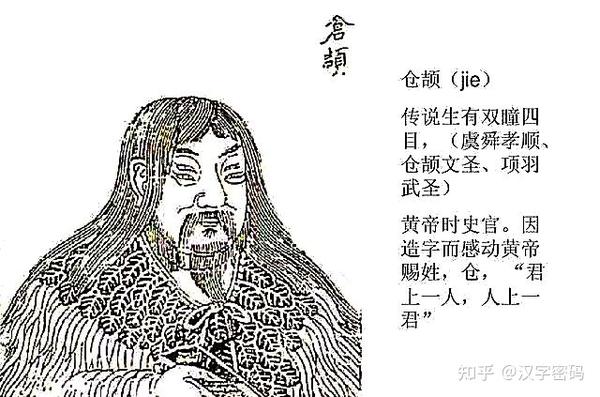 倉頡
仓颉（jie）
传说生有双瞳四
目，（虞舜孝顺、
仓颉文圣、项羽
武圣）
黄帝时史官。因
造字而感动黄帝
赐姓，仓，“君
上一人，人上一
君”
知乎 @汉字密码